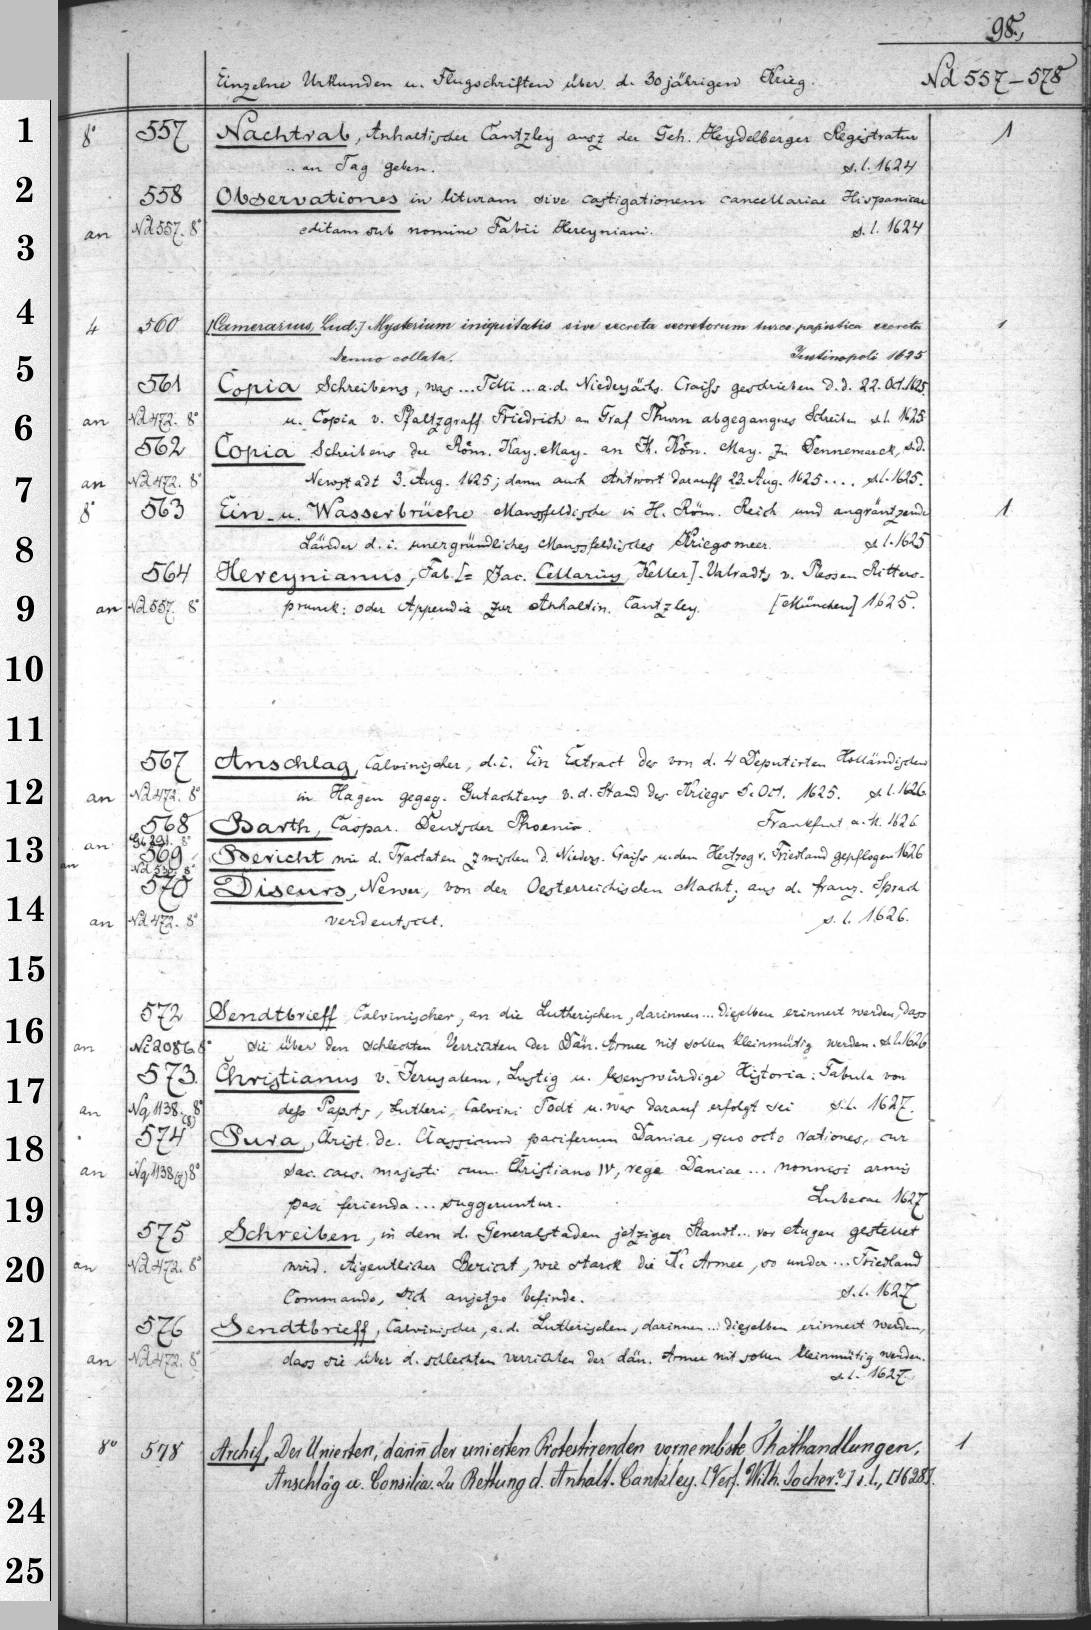 98.
Einzelne Urkunden u. Flugschriften über d. 30jährigen Krieg. Nd 557–578
1 8° 557 Nachtrab, Anhaltischer Cantzley ausz der Geh. Heydelberger Registratur 1
.. an Tag geben. s.l. 1624
2 558 Observationes in lituram sive castigationem cancellariae Hispanicae
3 an Nd 557. 8° editam sub nomine Fabii Hercyniani. s.l. 1624
4 4 560 [Camerarius, Lud.] Mysterium iniquitatis sive secreta secretorum turco-papistica secreta 1
5 denuo collata. Justinopoli 1625
561 Copia Schreibens, was ... Tilli ... a.d. Niedersächs. Craiss geschrieben d.d. 22. Oct. 1625
6 an Nd 472. 8° u. Copia v. Pfaltzgraff Friedrich an Graf Thurn abgegangnes Schreiben s.l. 1625
562 Copia Schreibens der Röm. Kay. May. an K. Kön. May. zu Dennemarck, d.d.
7 an Nd 472. 8° Newstadt 3. Aug. 1625; dann auch Antwort darauff 23. Aug. 1625.... s.l. 1625.
8° 563 Ein- u. Wasserbrüche Mansfeldische in H. Röm. Reich und angräntzende 1
8 Länder d.i. unergründliches Manssfeldisches Kriegsmeer. s.l. 1625
564 Hercynianus, Fab. [= Jac. Cellarius, Keller]. Valradts v. Plessen Ritters-
9 an Nd 557. 8° prunck: oder Appendix zur Anhaltin. Cantzley. [München] 1625.
10
11
567 Anschlag, Calvinischer, d.i. Ein Extract des von d. 4 Deputirten Holländischen
12 an Nd 472. 8° in Hagen gegeg. Gutachtens v.d. Stand des Kriegs 5. Oct. 1625. s.l. 1626
568 Barth, Caspar. Deutscher Phoenix. Frankfurt a. M. 1626
13 an 8°
an 569 Bericht wie d. Tractaten zwischen d. Nieders. Craiss u. den Hertzog v. Friedland gepflogen 1626
Nd 535. 8°
570 Discurs, Newer, von der Oesterreichischen Macht; aus d. franz. Sprach
14 an Nd 472. 8° verdeutscht. s.l. 1626.
15
572 Sendtbrieff Calvinischer, an die Lutherischen, darinnen ... dieselben erinnert werden, dass
16 an Nc 2086 8° sie über den schlechten Verrichten der Dän. Armee nit sollen kleinmütig werden. s.l. 1626
573. Christianus v. Jerusalem, Lustig u. lesenswürdige Historia: Fabula von
17 an Nq 1138. 8° dess Papsts, Lutheri, Calvini Todt u. was darauf erfolgt sei s.l. 1627.
(8)
574 Pura, Christ. de. Classicum paciferum Daniae, quo octo rationes, cur
18 an Nq 1138 8° sac. caes. majesti cum Christiano IV, rege Daniae ... nonnisi armis
19 pax ferienda ... suggeruntur. Lubecae 1627
575 Schreiben, in dem d. Generalstaden jetziger Standt ... vor Augen gestellet
20 an Nd 472. 8° wird. Aigentlicher Bericht, wie starck die K. Armee, so under ... Friedland
Commando, sich anjetzo befinde. s.l. 1627
21 576 Sendtbrieff, Calvinischer, a.d. Lutherischen, darinnen ... dieselben erinnert werden,
an Nd 472. 8° dass sie über d. schlechten verrichten der dän. Armee nit sollen kleinmütig werden.
22 s.l. 1627
23 8° 578 Archif, Der Unierten, darin̄ der unierten Protestirenden vornembste Thathandlungen, 1
24 Anschläg u. Consilia. Zu Rettung d. Anhalt. Cantzley. [Verf. Wilh. Jocher?] s.l., [1628].
25